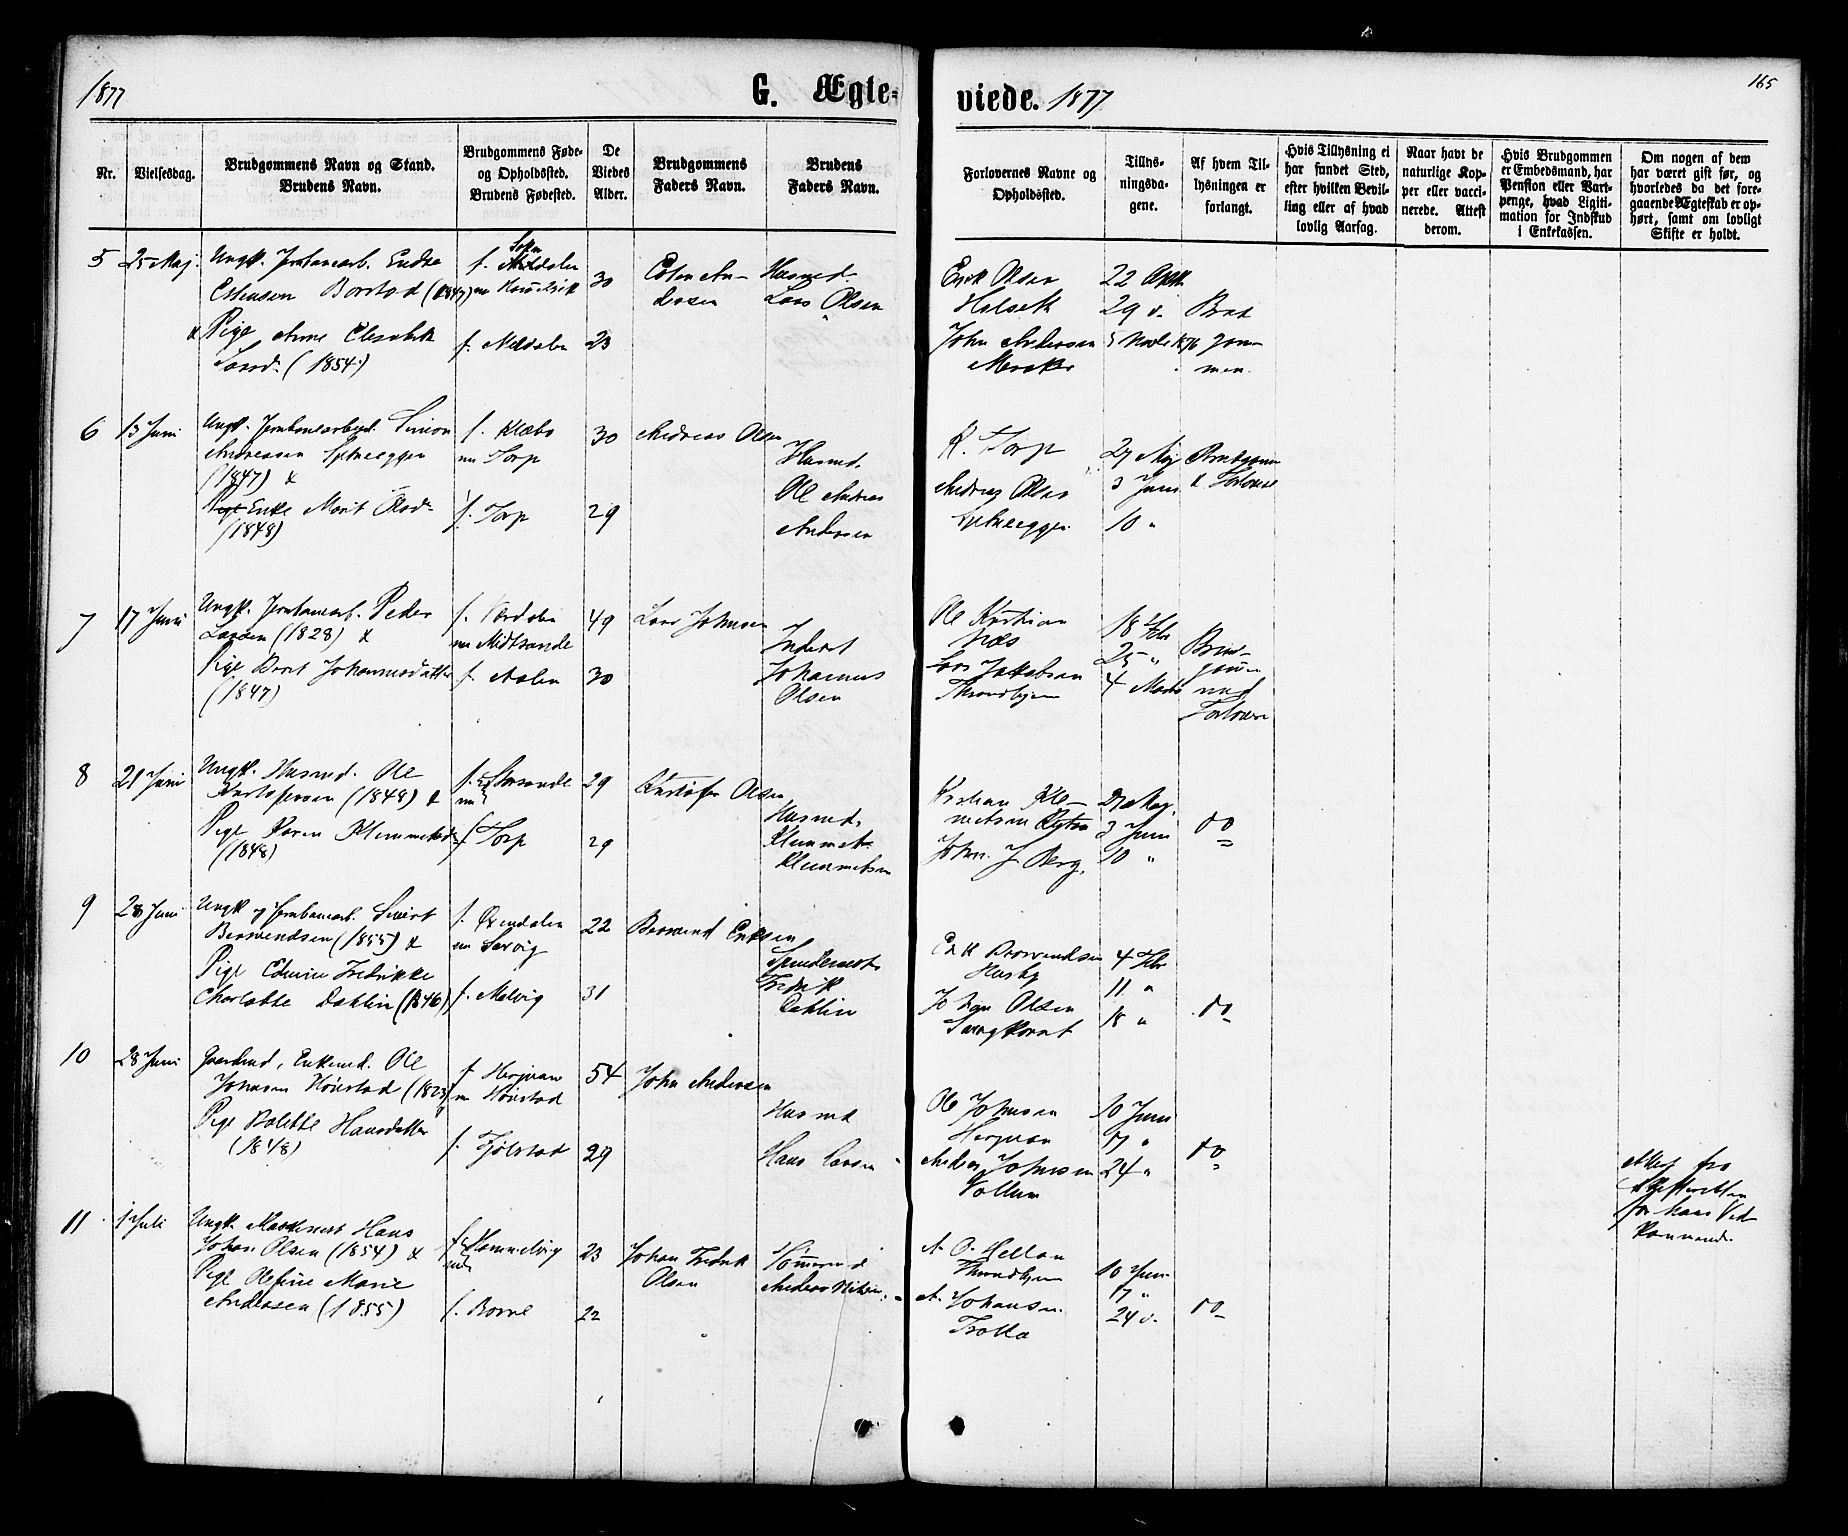 1877
G. Ægte-
viede. 1877
165
Nr.
Vielsesdag.
Brudgommens Navn og Stand.
Brudens Navn.
Brudgommens Føde-
og Opholdssted.
Brudens Fødested.
De
Viedes
Alder.
Brudgommens
Faders Navn.
Brudens
Faders Navn.
Forlovernes Navne og
Opholdssted.
Tillys-
ningsda-
gene.
Af hvem Til-
lysningen er
forlangt.
Hvis Tillysning ei
har fundet Sted,
efter hvilken Bevil-
ling eller af hvad
lovlig Aarsag.
Naar havt de
naturlige Kop-
per eller vacci-
nerede. Attest
derom.
Hvis Brudgommen
er Embedsmand, har
Pension eller Vart-
penge, hvad Ligiti-
mation for Indskud
i Enkekassen.
Om nogen af dem
har været gift før, og
hvorledes da det fore-
gaaende Ægteskab er op-
hørt, samt om lovligt
Skifte er holdt.
5 25 Maj. Ungk. Jernbanearb. Endre
Estensen Borstad (1847)
& Pige Anne Elisabeth
Larsd. (1854)
f.
f. Meldalen
30
23
Esten An-
dersen
Husmd.
Lars Olsen
Erik Olsen
John Andersen
Meraker
22
29 "
Brud-
gom-
men
6 13 Juni Ungk. Jernbanearbeid. Simon
Andreasen
(1847) &
Pige Enke Marit Olsd.
(1848)
f. Klæbo
nu Torp
f. Torp
30
29
Andreas Olsen
Husmd.
Ole Andreas
Andersen
K. Torp
Andreas Olsen
27 Maj
3 Juni
10 "
Brudgom
& Forlovere
7 17 Juni Ungk. Jernbanearb. Peder
Larsen (1828) &
Pige Berit Johannesdatter
(1847)
f. Værdalen
nu Midtsande
f. Aalen
49
30
Lars Johnsen
Inderst
Johannes
Olsen
Ole Kristian
Næs
Lars Jakobsen
Throndhjem
18 Feb
25 "
4 Marts
Brud-
gom-
med
Forlovere
8 21 Juni Ungk. Husmd. Ole
Kristofersen (1848) &
Pige Karen Klemmetsd.
(1848)
f. og nu Storsande
f. Torp
29
29
Kristofer Olsen
Husmd.
Klemmet
Klemmetsen
Kristian Kle-
metsen
John J Berg.
27 Maj
3 Juni
10 "
do
9 28 Juni Ungk og Jernbanearb. Sivert
Bersvendsen (1855) &
Pige Edvine Fredrikke
Charlotte Dahlin (1846)
f.
nu Saxvig
f. Malvig
22
31
Bersvend Eriksen
Fredrik
Dahlin
Erik Bersvendsen
Husby
Johan Olsen
4 Feb
11 "
18 "
do
10 28 Juni Gaardmd, Enkemd. Ole
Johnsen Hønstad (1823)
Pige Bolette Hansdatter
(1848)
f. Herjuan
nu Hønstad
f. Fjølstad
54
29
John Andersen
Husmd
Hans Larsen
Ole Johnsen
Herjuan
Anders Johnsen
Vollum
10 Juni
17 "
24 "
do
Attest fra
Skifteretten
for hans Ved-
kommende
11 1 Juli Ungk. Maskinist Hans
Johan Olsen (1854) &
Pige Olefine Marie
Andersen (1855)
f. og nu Hommelvig
f. Borne
23
22
Johan Fredrik
Olsen
Tømmermd
A. O. Hellan
Throndhjem
A. Johansen
Trolla
10 Juni
17 "
24 "
do